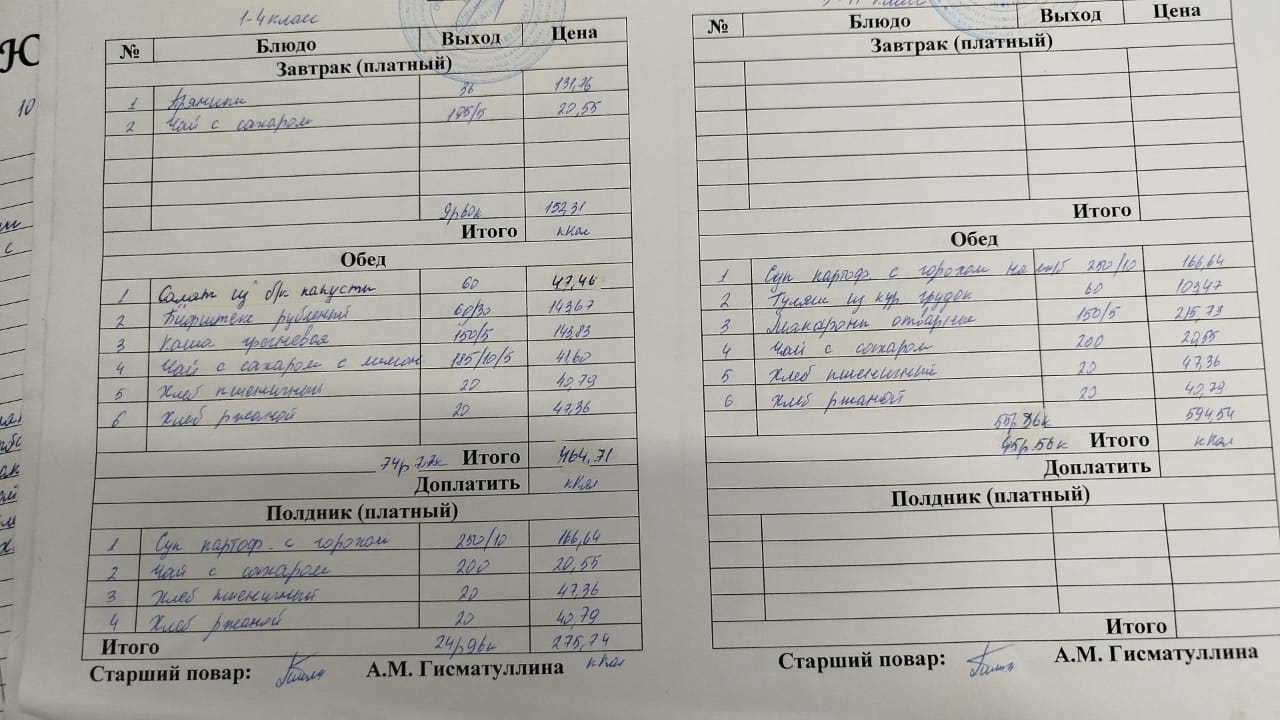 Ю
10
с
1-4 класс
№ Блюдо Выход Цена
Завтрак (платный)
1 Пряники 36 131,76
2 Чай с сахаром 195/5 20,55
9р60к 152,31
Итого кКал
Обед
1 Салат из б/к капусты 60 47,46
2 Бифштекс рубленый 60/30 143,67
3 Каша гречневая 150/5 143,83
4 Чай с сахаром с лимон 185/10/5 41,60
5 Хлеб пшеничный 20 40,79
6 Хлеб ржаной 20 47,36
74р 77к Итого 464,71
Доплатить кКал
Полдник (платный)
1 Суп картоф. с горохом 250/10 166,64
2 Чай с сахаром 200 20,55
3 Хлеб пшеничный 20 47,36
4 Хлеб ржаной 20 40,79
Итого 24р96к 275,74
кКал
Старший повар: А.М. Гисматуллина
5-11 класс
№ Блюдо Выход Цена
Завтрак (платный)
Итого
Обед
1 Суп картоф. с горохом на 250/10 166,64
2 Гуляш из кур грудок 60 103,47
3 Макароны отварные 150/5 215,73
4 Чай с сахаром 200 20,55
5 Хлеб пшеничный 20 47,36
6 Хлеб ржаной 20 40,79
594,54
45р.56к Итого кКал
Доплатить
Полдник (платный)
Итого
Старший повар: А.М. Гисматуллина